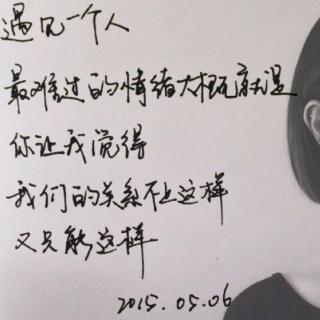 遇见一个人
最难过的情绪大概就是
你让我觉得
我们的关系不止这样
又只能这样
2015.05.06